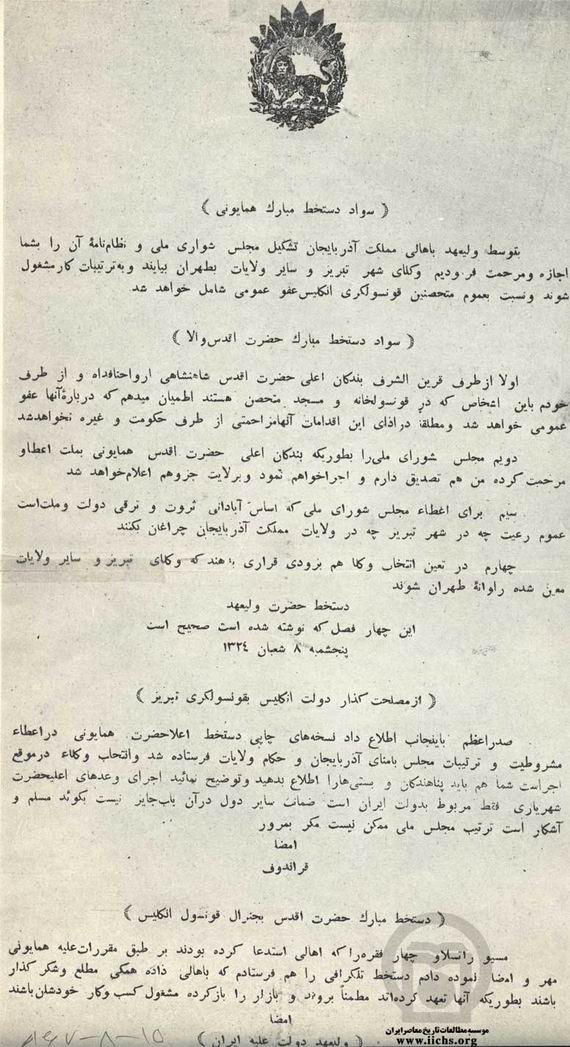 ( سواد دستخط مبارك همايونى )
بتوسط وليعهد باهالى مملكت آذربايجان تشكيل مجلس شوراى ملى و نظامنامهٔ آن را بشما
اجازه ومرحمت فرموديم وكلاى شهر تبريز و ساير ولايات بطهران بيايند و به ترتيبات كار مشغول
شوند ونسبت بعموم متحصنين قونسولگرى انگليس عفو عمومى شامل خواهد شد
( سواد دستخط مبارك حضرت اقدس والا )
اولا از طرف قرين الشرف بندكان اعلى حضرت اقدس شاهنشاهى ارواحنافداه و از طرف
خودم باين اشخاص كه در قونسولخانه و مسجد متحصن هستند اطميان ميدهم كه دربارهٔ آنها عفو
عمومى خواهد شد ومطلقا در اذاى اين اقدامات آنها مزاحمتى از طرف حكومت و غيره نخواهد شد
دويم مجلس شوراى ملى را بطوريكه بندكان اعلى حضرت اقدس همايونى بملت اعطا و
مرحمت كرده من هم تصديق دارم و اجرا خواهم نمود وبرلايت جزو هم اعلام خواهد شد
سيم براى اعطاء مجلس شوراى ملى كه اساس آبادانى ثروت و ترقى دولت وملت است
عموم رعيت چه در شهر تبريز چه در ولايات مملكت آذربايجان چراغان بكنند
چهارم در تعين انتخاب وكلا هم بزودى قرارى بدهند كه وكلاى تبريز و ساير ولايات
معين شده راوانهٔ طهران شوند
دستخط حضرت وليعهد
اين چهار فصل كه نوشته شده است صحيح است
پنجشمبه ٨ شعبان ١٣٢٤
( از مصلحت كذار دولت انكليس بقونسولكرى تبريز )
صدراعظم باينجانب اطلاع داد نسخه‌هاى چاپى دستخط اعلاحضرت همايونى در اعطاء
مشروطيت و ترتيبات مجلس بامناى آذربايجان و حكام ولايات فرستاده شد وانتخاب وكلاء در موقع
اجراست شما هم بايد پناهندكان و بستى‌هارا اطلاع بدهيد وتوضيح نمائيد اجراى وعدهاى اعليحضرت
شهريارى فقط مربوط بدولت ايران است ضمانت ساير دول در آن باب جايز نيست بكوئد مسلم و
آشكار است ترتيب مجلس ملى ممكن نيست مكر بمرور
امضا
قراندوف
( دستخط مبارك حضرت اقدس بجنرال قونسول انكليس )
مسيو راتسلاو چهار فقره‌را كه اهالى استدعا كرده بودند بر طبق مقررات عليه همايونى
مهر و امضا نموده دادم دستخط تلكرافى را هم فرستادم كه باهالى داده همكى مطلع وشكر كذار
باشند بطوريكه آنها تعهد كرده‌اند مطمئناً بروند و بازار را باز كرده مشغول كسب وكار خودشان باشند
امضا
( وليعهد دولت عليه ايران )
موسسه مطالعات تاريخ معاصر ايران
www.iichs.org